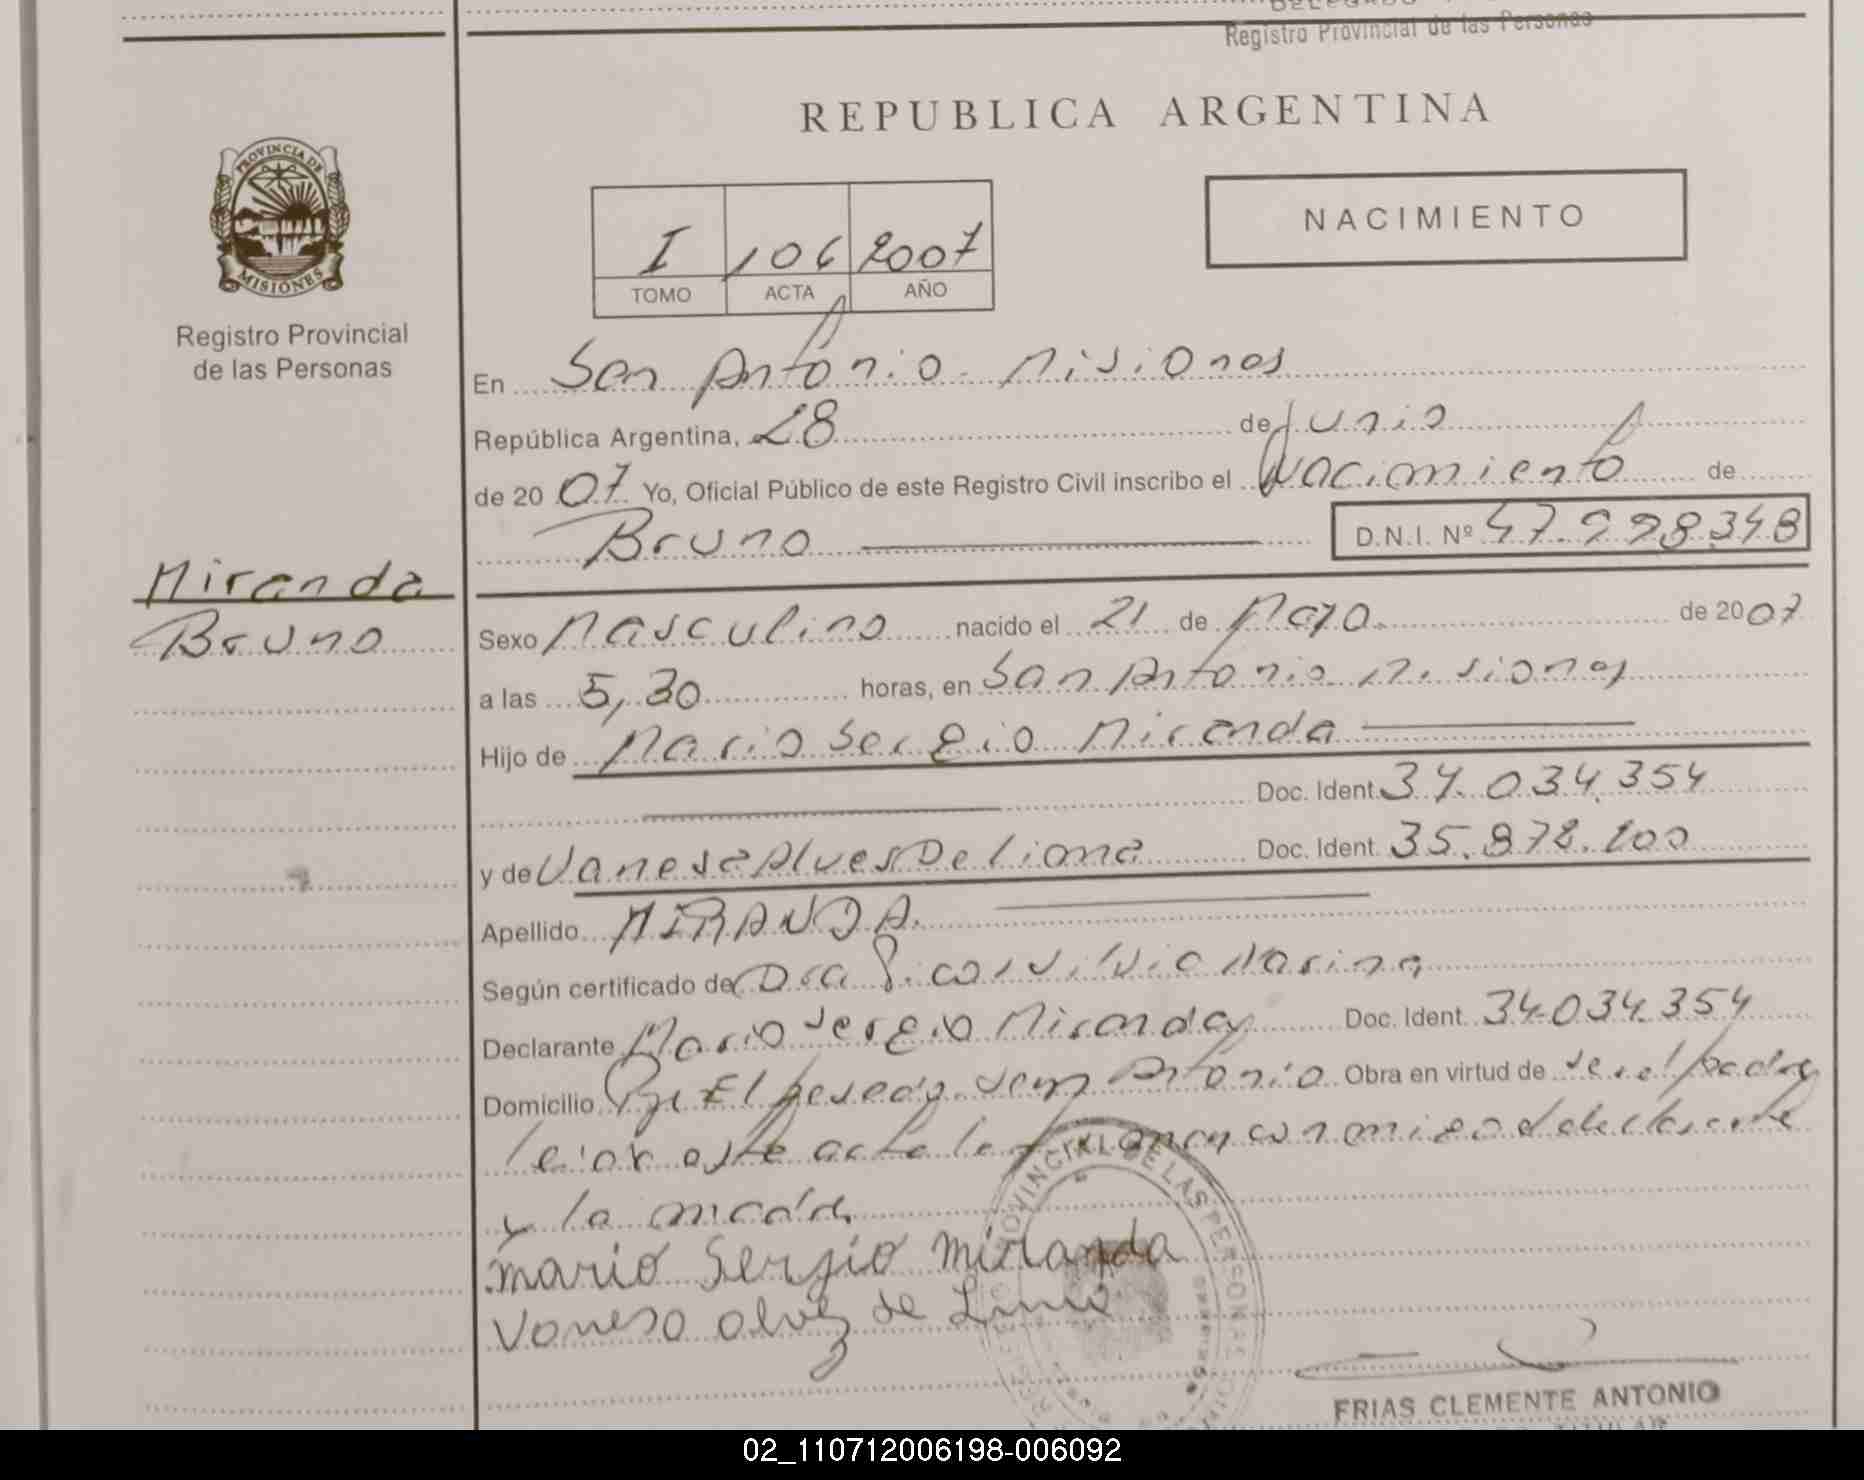 Registro Provincial de las Personas
REPUBLICA ARGENTINA
PROVINCIA DE
MISIONES
Registro Provincial
de las Personas
NACIMIENTO
I 106 2007
TOMO ACTA AÑO
En San Antonio Misiones
República Argentina, 28 de Junio
de 2007 Yo, Oficial Público de este Registro Civil inscribo el Nacimiento de
Bruno D.N.I. Nº 47.998.348
Miranda
Bruno
Sexo Masculino nacido el 21 de Mayo de 2007
a las 5,30 horas, en San Antonio Misiones
Hijo de Mario Sergio Miranda
Doc. Ident. 34.034.354
y de Vanesa Alves De Lima Doc. Ident. 35.872.200
Apellido MIRANDA
Según certificado de Dra Marina
Declarante Mario Sergio Miranda Doc. Ident. 34.034.354
Domicilio San Antonio Obra en virtud de ser el padre
leida este acta la firman conmigo el declarante
y la madre
mario Sergio Miranda
Vanesa alvez de Lima
PROVINCIAL DE LAS PERSONAS
FRIAS CLEMENTE ANTONIO
TITULAR
02_110712006198-006092